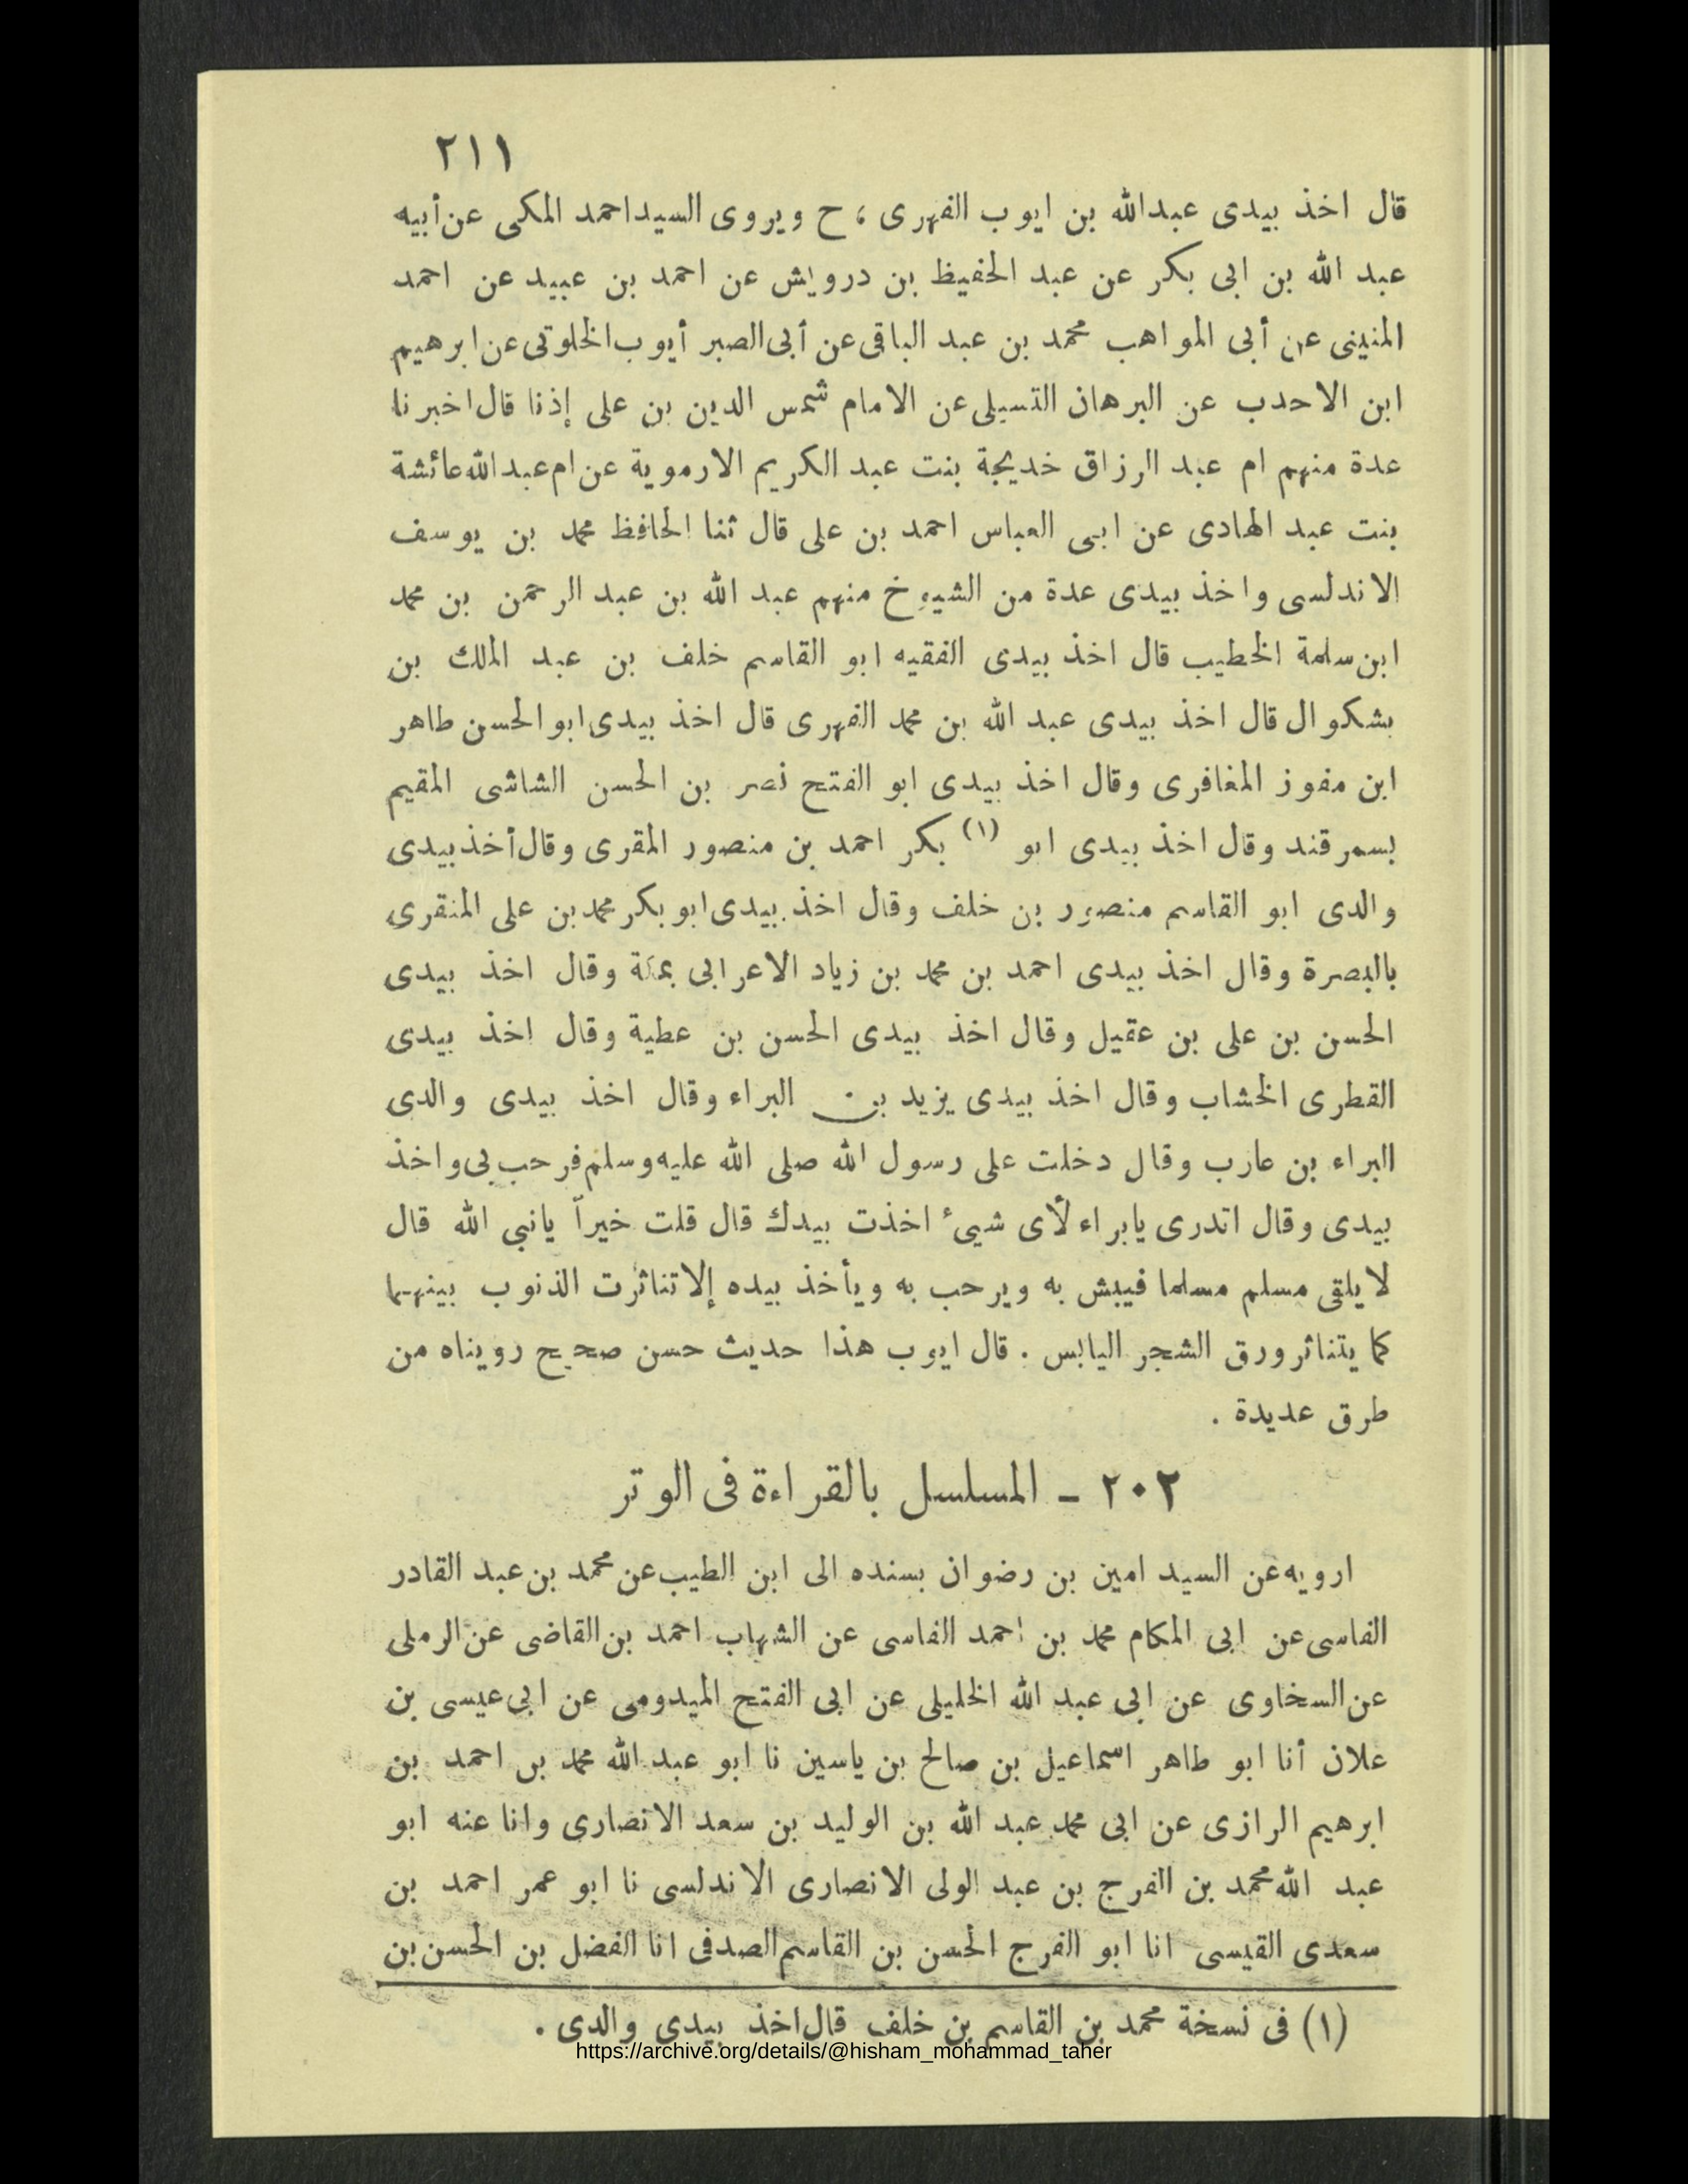 ٢١١
قال اخذ بيدى عبدالله بن ايوب الفهرى ، ح ويروى السيداحمد المكى عن أبيه
عبد الله بن ابى بكر عن عبد الحفيظ بن درويش عن احمد بن عبيد عن احمد
المنينى عن أبى المواهب محمد بن عبد الباقى عن أبى الصبر أيوب الخلوتى عن ابرهيم
ابن الاحدب عن البرهان التسيلى عن الامام شمس الدين بن على إذنا قال اخبرنا
عدة منهم ام عبد الرزاق خديجة بنت عبد الكريم الارموية عن ام عبد الله عائشة
بنت عبد الهادى عن ابى العباس احمد بن على قال ثنا الحافظ محمد بن يوسف
الاندلسى واخذ بيدى عدة من الشيوخ منهم عبد الله بن عبد الرحمن بن محمد
ابن سلمة الخطيب قال اخذ بيدى الفقيه ابو القاسم خلف بن عبد الملك بن
بشكوال قال اخذ بيدى عبد الله بن محمد الفهرى قال اخذ بيدى ابو الحسن طاهر
ابن مفوز المغافرى وقال اخذ بيدى ابو الفتح نصر بن الحسن الشاشى المقيم
بسمرقند وقال اخذ بيدى ابو (١) بكر احمد بن منصور المقرى وقال أخذ بيدى
والدى ابو القاسم منصور بن خلف وقال اخذ بيدى ابو بكر محمد بن على المنقرى
بالبصرة وقال اخذ بيدى احمد بن محمد بن زياد الاعرابى بمكة وقال اخذ بيدى
الحسن بن على بن عقيل وقال اخذ بيدى الحسن بن عطية وقال اخذ بيدى
القطرى الخشاب وقال اخذ بيدى يزيد بن البراء وقال اخذ بيدى والدى
البراء بن عازب وقال دخلت على رسول الله صلى الله عليه وسلم فرحب بى واخذ
بيدى وقال اتدرى يابراء لأى شيىء اخذت بيدك قال قلت خيراً يانبى الله قال
لا يلقى مسلم مسلما فيبش به ويرحب به ويأخذ بيده إلا تناثرت الذنوب بينهما
كما يتناثر ورق الشجر اليابس . قال ايوب هذا حديث حسن صحيح رويناه من
طرق عديدة .
٢٠٢ - المسلسل بالقراءة فى الوتر
ارويه عن السيد امين بن رضوان بسنده الى ابن الطيب عن محمد بن عبد القادر
الفاسى عن ابى المكام محمد بن احمد الفاسى عن الشهاب احمد بن القاضى عن الرملى
عن السخاوى عن ابى عبد الله الخليلى عن ابى الفتح الميدومى عن ابى عيسى بن
علان أنا ابو طاهر اسماعيل بن صالح بن ياسين نا ابو عبد الله محمد بن احمد بن
ابرهيم الرازى عن ابى محمد عبد الله بن الوليد بن سعد الانصارى وانا عنه ابو
عبد الله محمد بن الفرج بن عبد الولى الانصارى الاندلسى نا ابو عمر احمد بن
سعدى القيسى انا ابو الفرج الحسن بن القاسم الصدفى انا الفضل بن الحسن بن
(١) فى نسخة محمد بن القاسم بن خلف قال اخذ بيدى والدى .
https://archive.org/details/@hisham_mohammad_taher